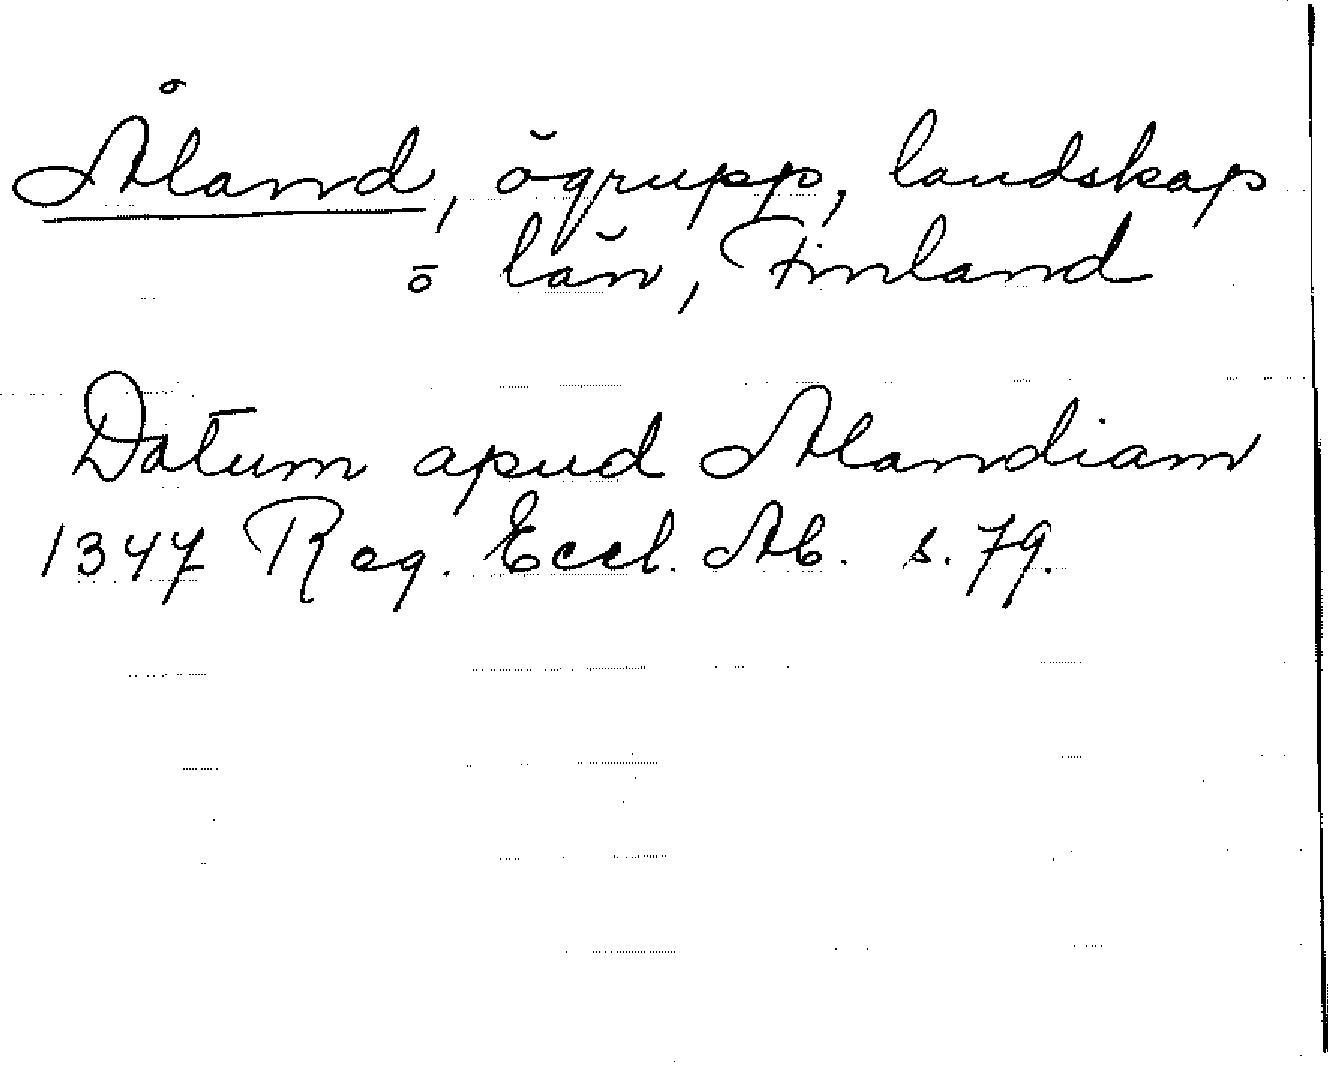 Åland, ögrupp, landskap
o län, Finland
Datum apud Alandiam
1347 Reg. Eccl. Ab. s. 79.